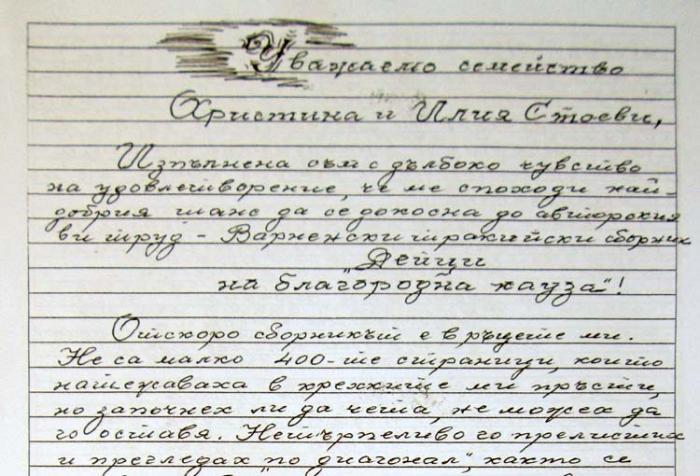 Уважаемо семейство
Христина и Илия Стоеви,
Изпълнена съм с дълбоко чувство
на удовлетворение, че ме споходи най-
добрия шанс да се докосна до авторския
ви труд - Варненски тракийски сборник
"Дейци
на благородна кауза"!
Отскоро сборникът е в ръцете ми.
Не са малко 400-те страници, които
натежаваха в крехките ми пръсти,
но започнех ли да чета, не можех да
го оставя. Нетърпеливо го прелистих
и прегледах "по диагонал", както се